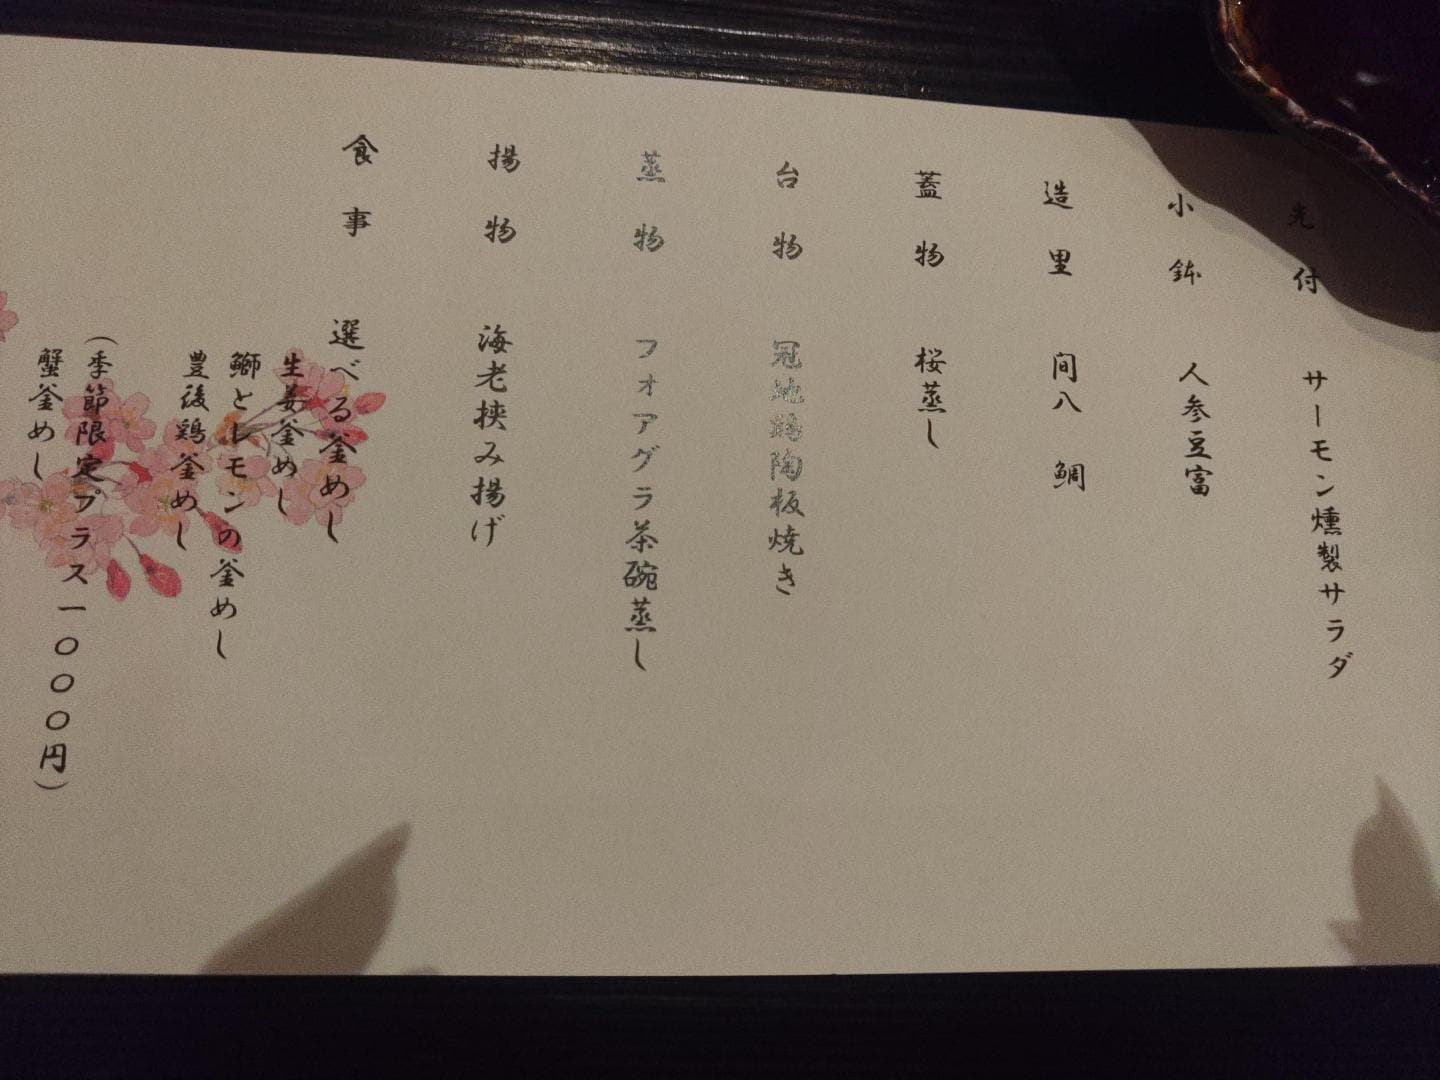 先付 サーモン燻製サラダ
小鉢 人参豆富
造里 間八 鯛
蓋物 桜蒸し
台物 冠地鶏陶板焼き
蒸物 フォアグラ茶碗蒸し
揚物 海老挟み揚げ
食事 選べる釜めし
生姜釜めし
鰤とレモンの釜めし
豊後鶏釜めし
(季節限定プラス一〇〇〇円)
蟹釜めし